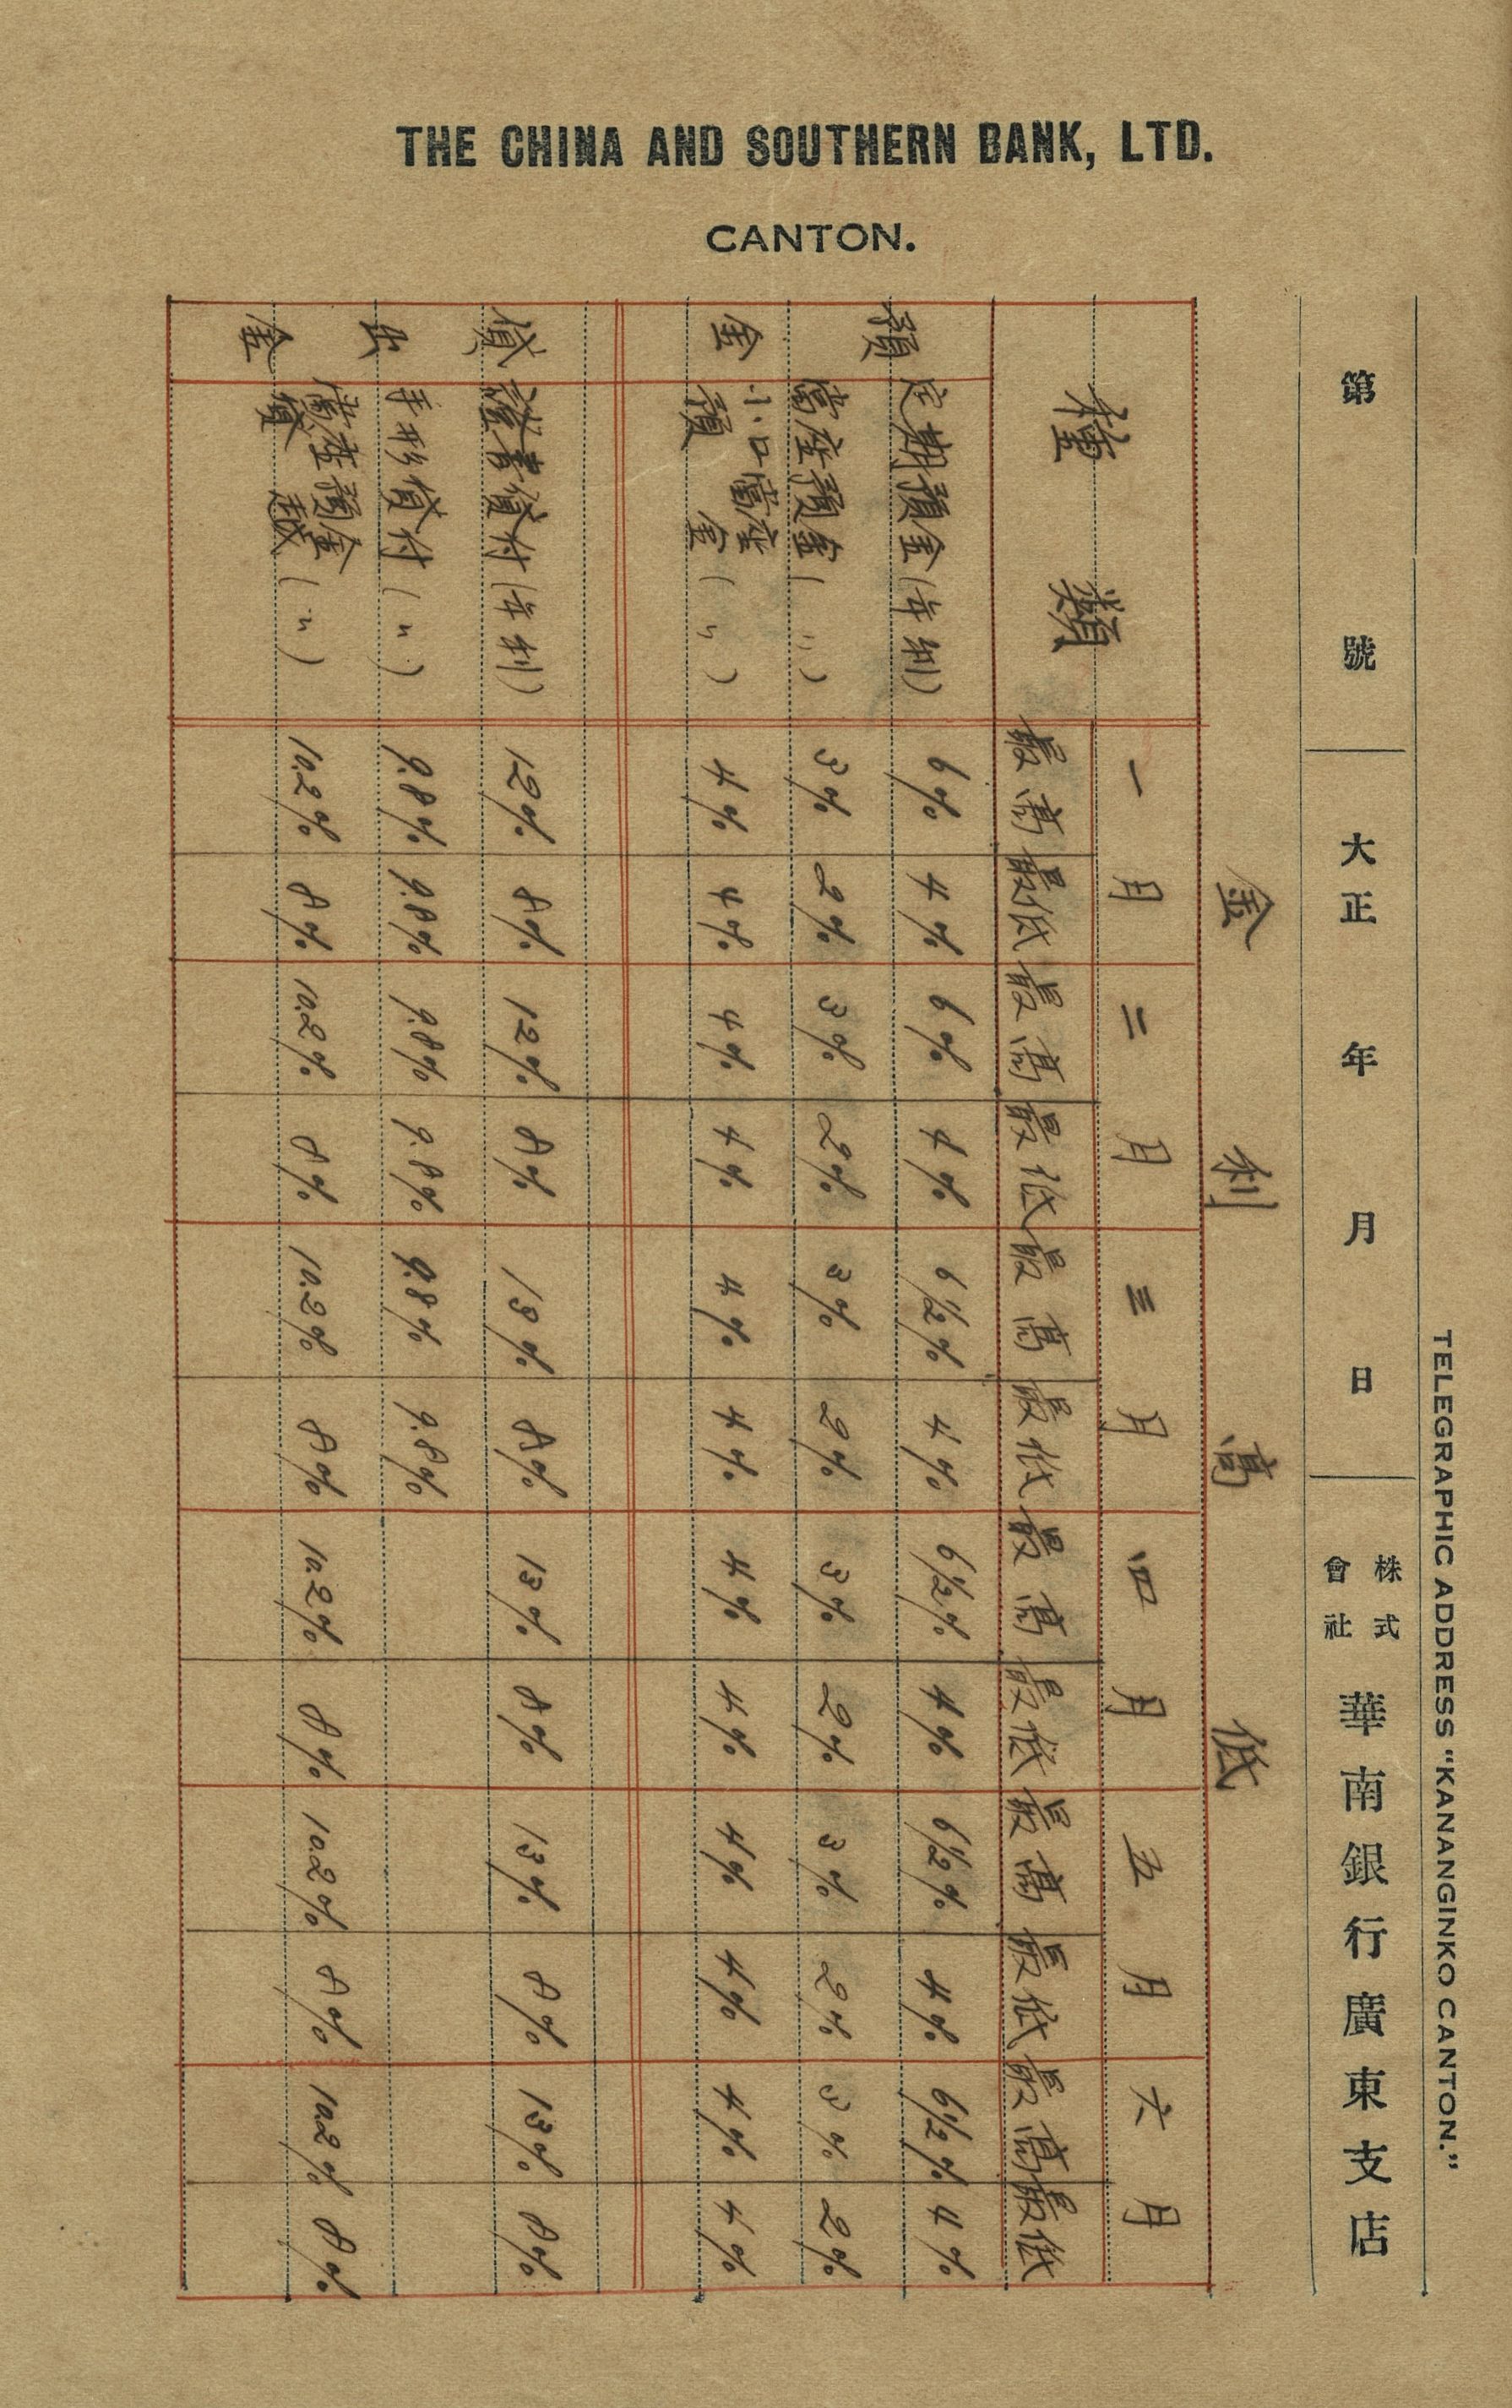 THE CHINA AND SOUTHERN BANK, LTD.
CANTON.
TELEGRAPHIC ADDRESS "KANANGINKO CANTON."
第 號 大正 年 月 日 株式會社 華南銀行廣東支店
金利高低
種類 一月 二月 三月 四月 五月 六月
最高 最低 最高 最低 最高 最低 最高 最低 最高 最低 最高 最低
預金
定期預金(年利) 6% 4% 6% 4% 6½% 4% 6½% 4% 6½% 4% 6½% 4%
當座預金(〃) 3% 2% 3% 2% 3% 2% 3% 2% 3% 2% 3% 2%
小口當座預金(〃) 4% 4% 4% 4% 4% 4% 4% 4% 4% 4% 4% 4%
貸出金
證書貸付(年利) 12% 8% 12% 8% 13% 8% 13% 8% 13% 8% 13% 8%
手形貸付(〃) 9.8% 9.8% 9.8% 9.8% 9.8% 9.8%
當座預金貸越(〃) 10.2% 8% 10.2% 8% 10.2% 8% 10.2% 8% 10.2% 8% 10.2% 8%